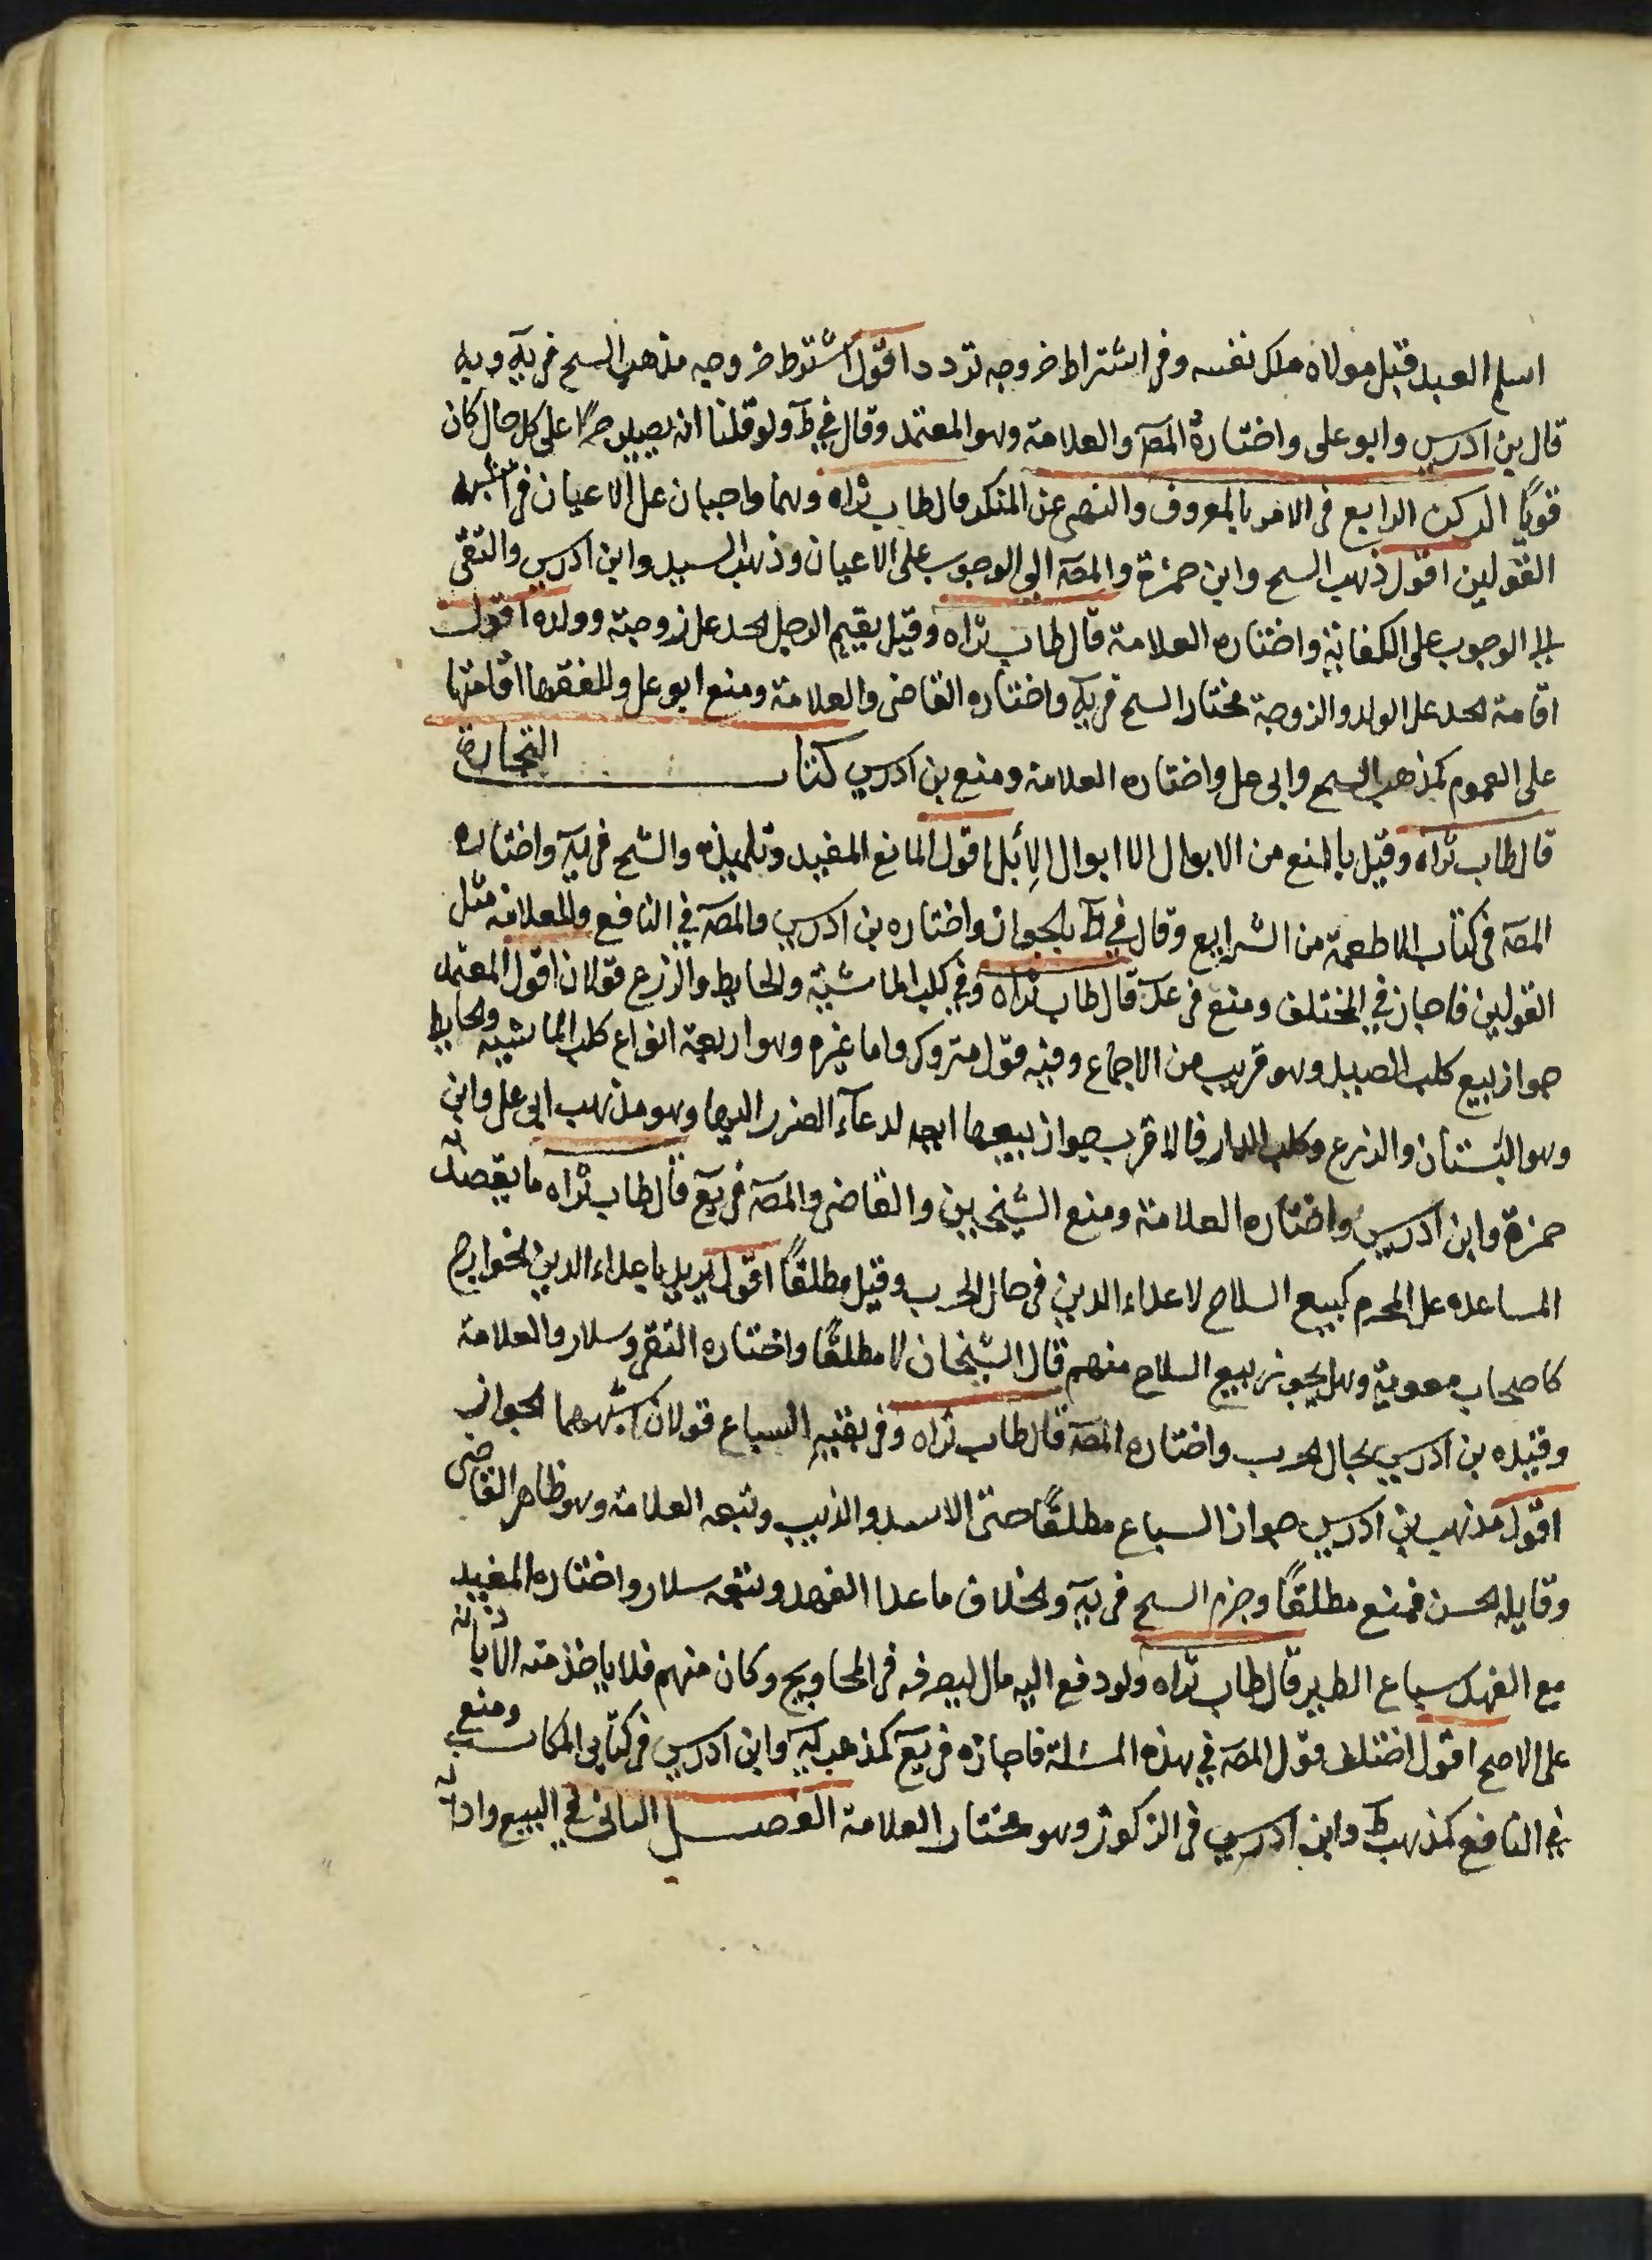 اسلم العبد قبل مولاه ملك نفسه وفى اشتراط خروجه تردد اقول اشترط خروجه مذهب الشيخ فى يه وبه
قال بن ادريس وابو على واختاره المصـ والعلامة وهو المعتمد وقال فى ط ولو قلنا انه يصير حرًا على كل حال كان
قويًا الركن الرابع فى الامر بالمعروف والنهى عن المنكر قال طاب ثراه وهما واجبان على الاعيان فى اشبه
القولين اقول ذهب الشيخ وابن حمزة والمصـ الى الوجوب على الاعيان وذهب السيد وابن ادريس والتقى
الى الوجوب على الكفاية واختاره العلامة قال طاب ثراه وقيل يقيم الرجل الحد على زوجته وولده اقول
اقامة الحد على الولد والزوجة مختار الشيخ فى يه واختاره القاضى والعلامة ومنع ابو على وللفقها اقامتها
على العموم كمذهب الشيخ وابى على واختاره العلامة ومنع بن ادريس كتاب التجارة
قال طاب ثراه وقيل بالمنع من الابوال الا ابوال الإبل اقول المانع المفيد وتلميذه والشيخ فى يه واختاره
المصـ فى كتاب الاطعمة من الشرايع وقال فى ط بالجواز واختاره بن ادريس والمصـ فى النافع وللعلامة مثل
القولين فاجاز فى المختلف ومنع فى عد قال طاب ثراه وفى كلب الماشية والحايط والزرع قولان اقول المعتمد
جواز بيع كلب الصيد وهو قريب من الاجماع وفيه قول متروك واما غيره وهو اربعة انواع كلب الماشية والحايط
وهو البستان والزرع وكلب الدار فالاقرب جواز بيعها اجمع لدعآء الضرر اليها وهو مذهب ابى على وابن
حمزة وابن ادريس واختاره العلامة ومنع الشيخين والقاضى والمصـ فى يع قال طاب ثراه ما يقصد به
المساعده على المحرم كبيع السلاح لاعداء الدين فى حال الحرب وقيل مطلقًا اقول يريد باعداء الدين الخوارج
كاصحاب معوية وهل يجوز بيع السلاح منهم قال الشيخان لا مطلقًا واختاره التقى وسلار والعلامة
وقيده بن ادريس بحال الحرب واختاره المصـ قال طاب ثراه وفى بقية السباع قولان اشبههما الجواز
اقول مذهب بن ادريس جواز السباع مطلقًا حتى الاسد والذيب وتبعه العلامة وهو ظاهر القاضى
وقابله الحسن فمنع مطلقًا وجزم الشيخ فى يه والخلاف ما عدا الفهد وتبعه سلار واختاره المفيد
مع الفهد سباع الطير قال طاب ثراه ولو دفع اليه مال ليصرفه فى المحاويج وكان منهم فلا ياخذ منه الا باذنه
على الاصح اقول اختلف قول المصـ فى هذه المسئلة فاجازه فى يع كمذهب يه وابن ادريس فى كتابى المكاسب ومنع
فى النافع كمذهب ط وابن ادريس فى الزكوة وهو مختار العلامة الفصل الثانى فى البيع وادابه